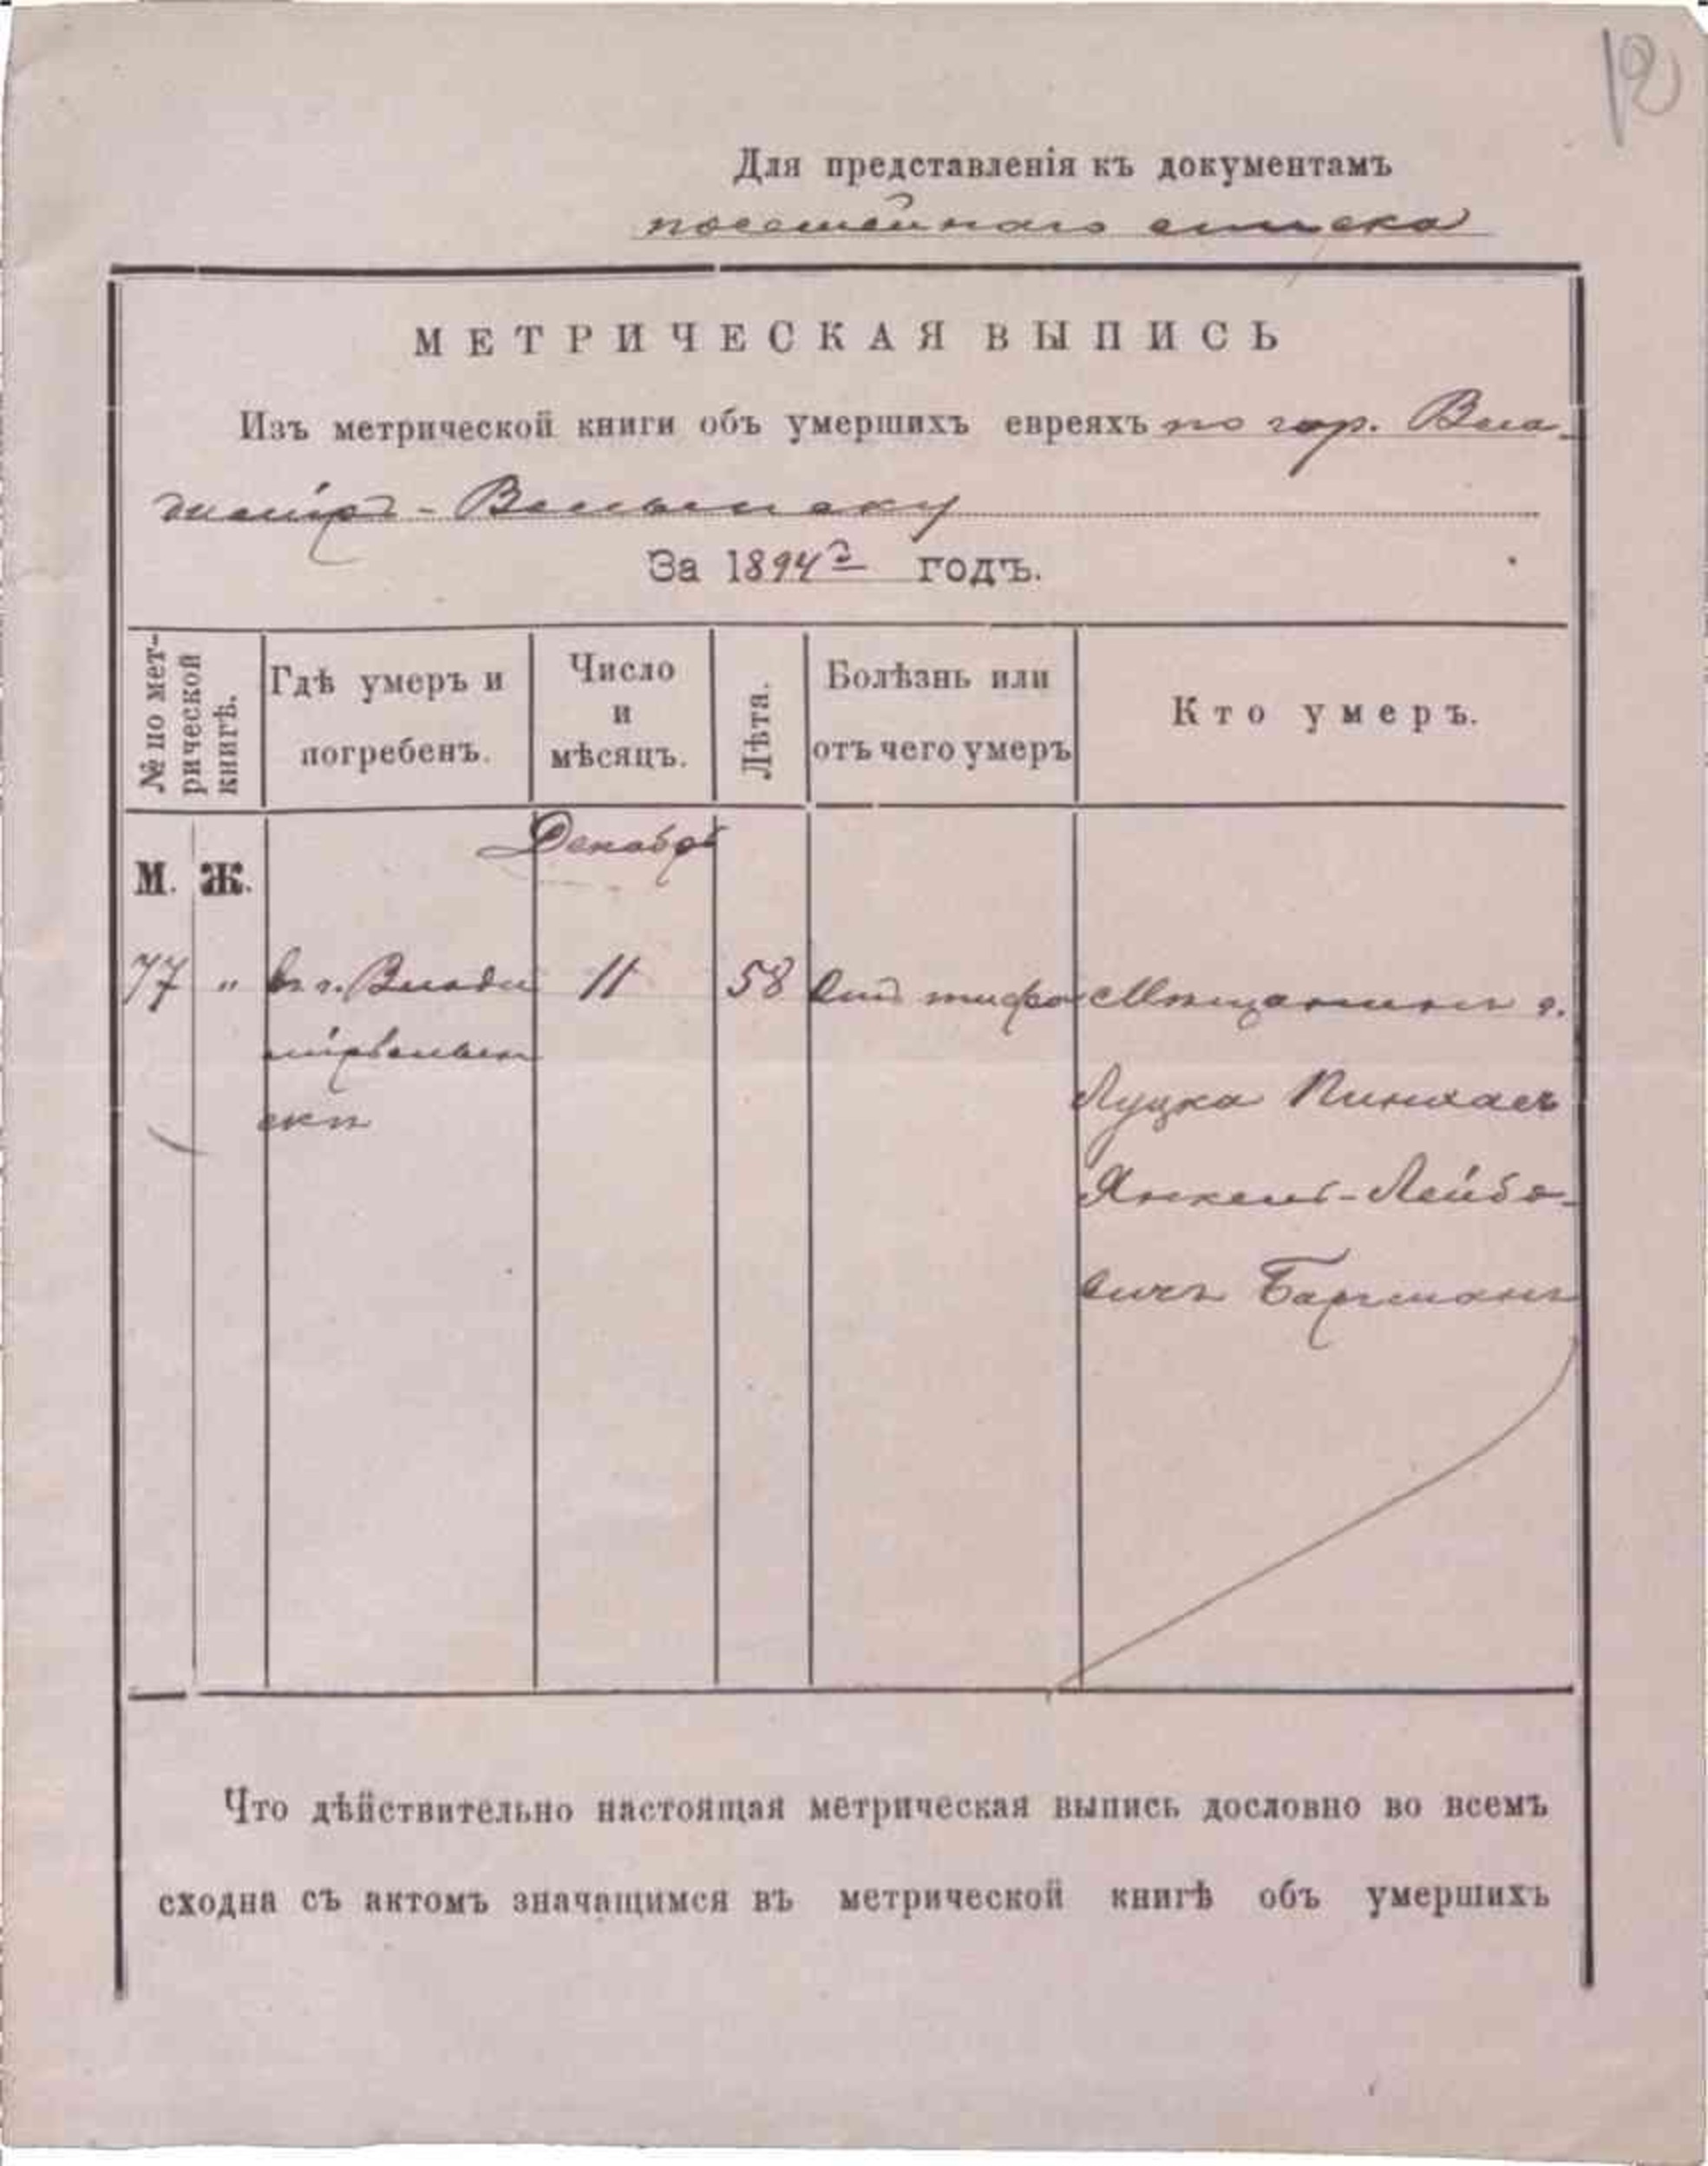 12
Для представленія къ документамъ
посемейнаго списка
МЕТРИЧЕСКАЯ ВЫПИСЬ
Изъ метрической книги объ умершихъ евреяхъ по гор. Вла-
диміръ-Волынску
За 1894й годъ.
№ по мет-
рической
книгѣ.
Гдѣ умеръ и
погребенъ.
Число
и
мѣсяцъ.
Лѣта.
Болѣзнь или
отъ чего умеръ
Кто умеръ.
М. Ж.
Декабрь
77 " въ г. Влади 11 58 Отъ тифа Мѣщанинъ г.
мірволын
скѣ
Луцка Пинхасъ
Янкель-Лейбо-
вичъ Баргманъ
Что дѣйствительно настоящая метрическая выпись дословно во всемъ
сходна съ актомъ значащимся въ метрической книгѣ объ умершихъ